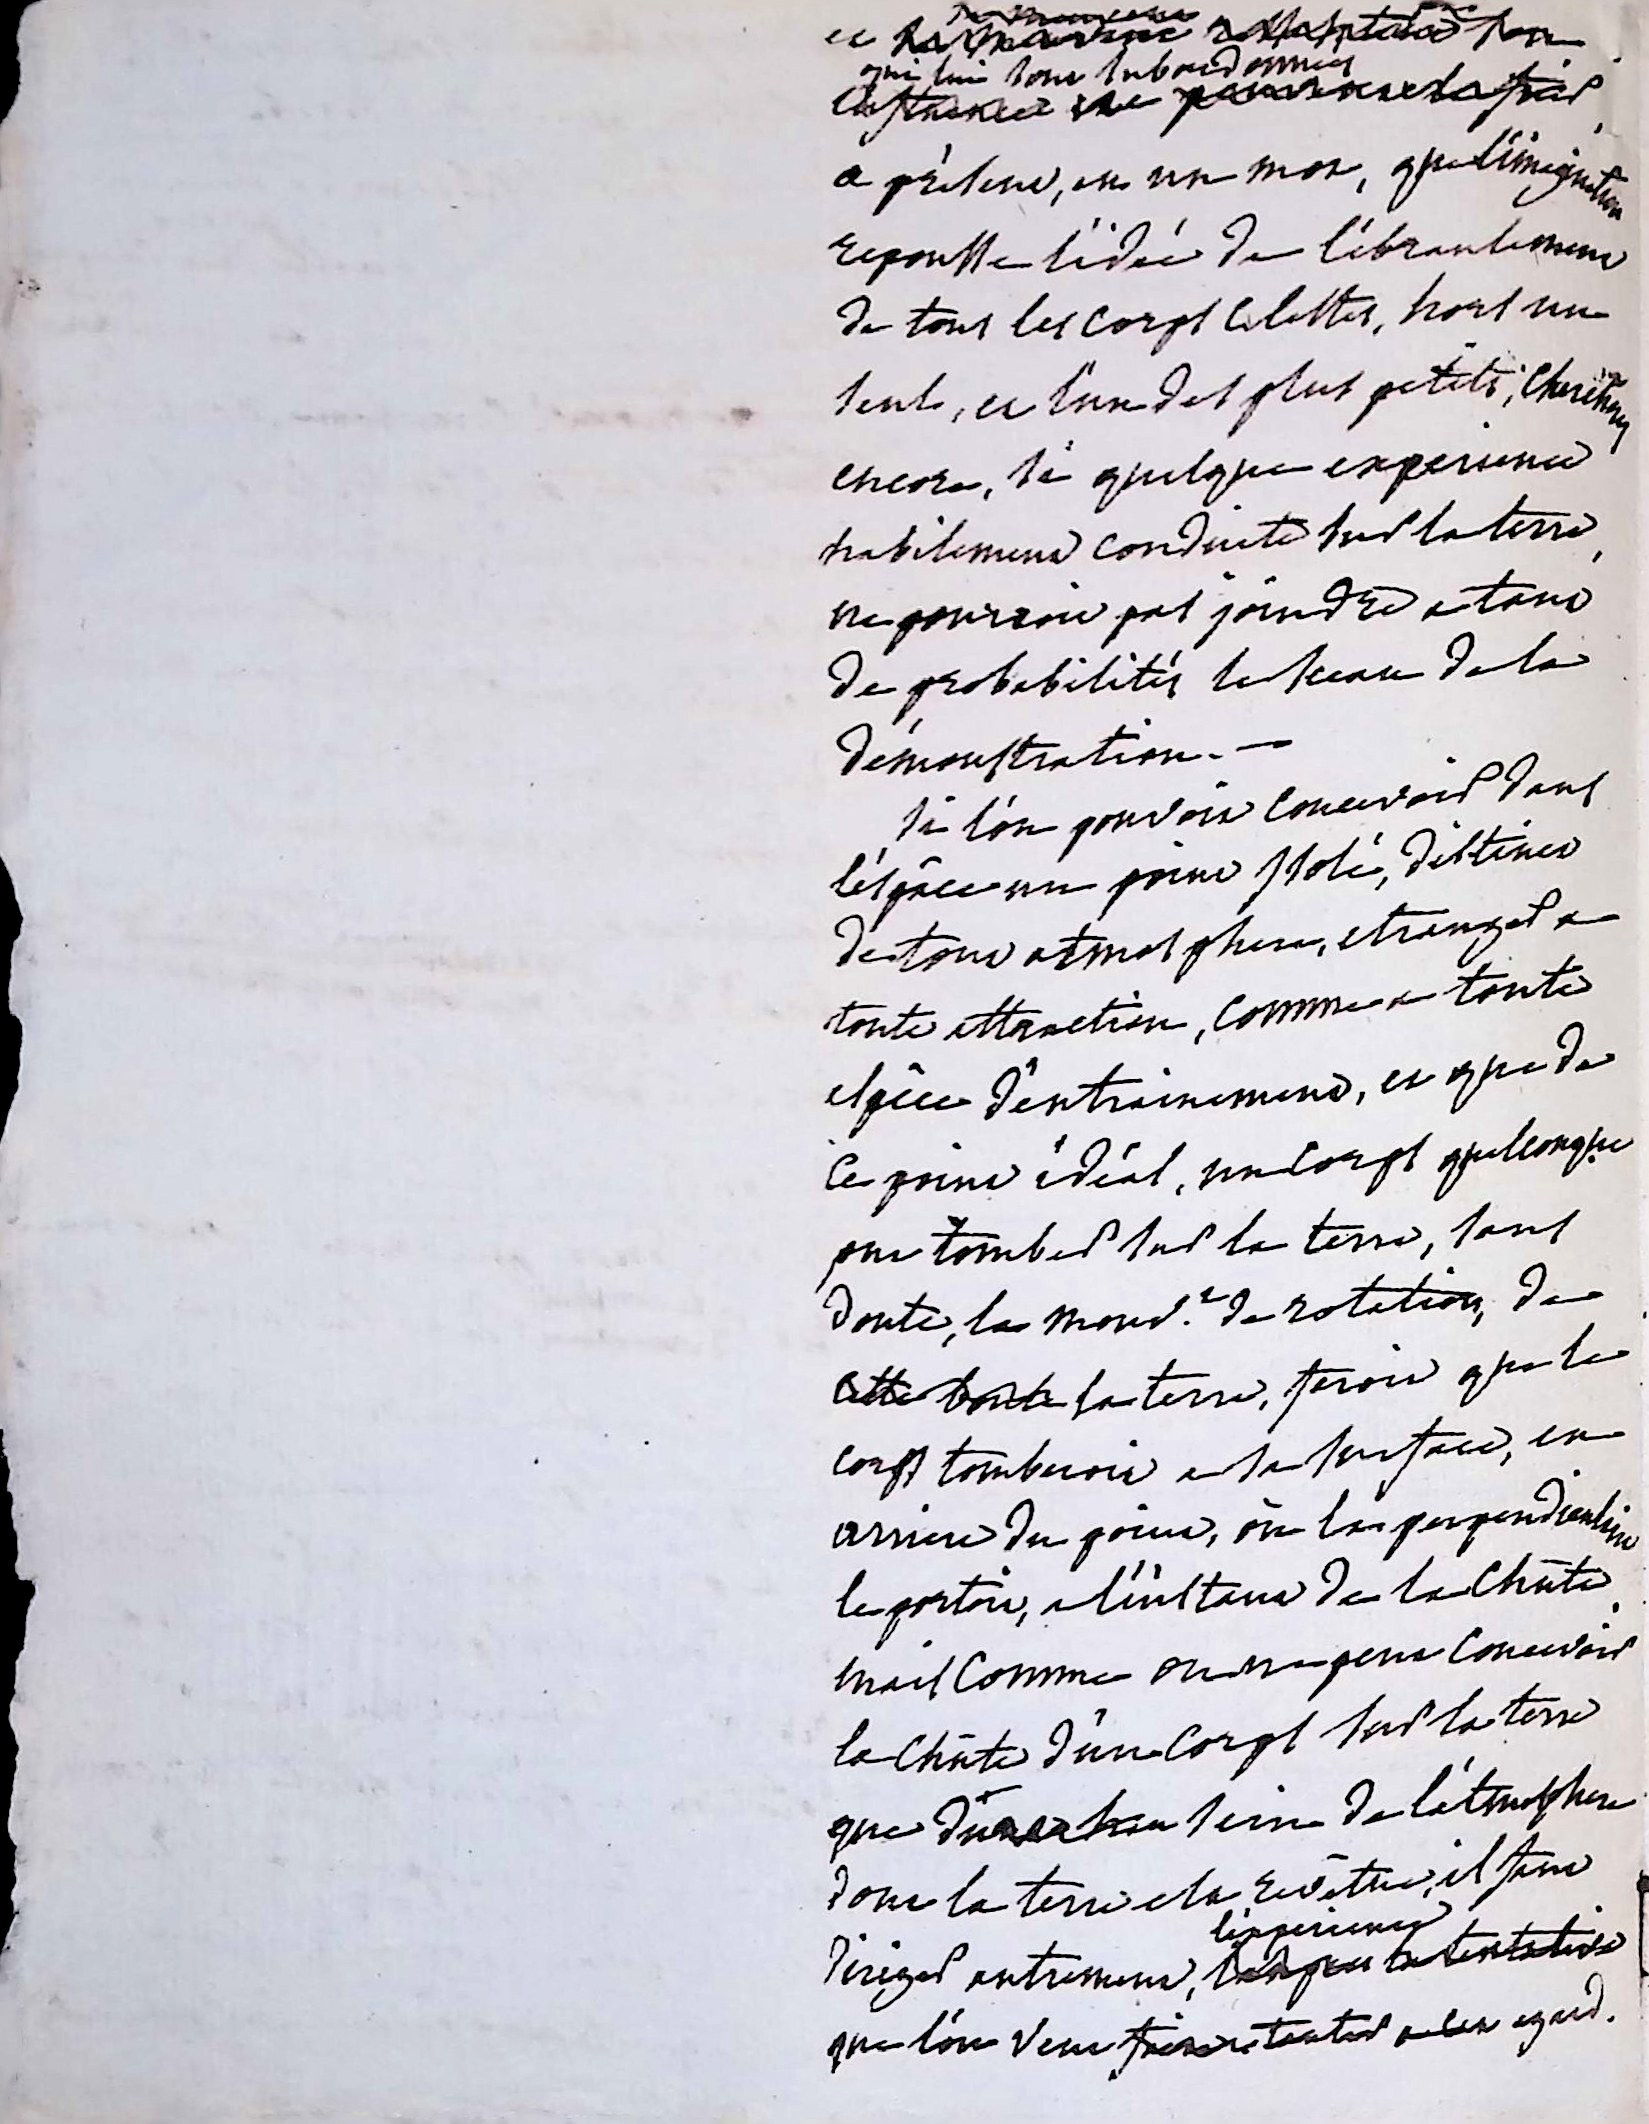 et
qui lui sont subordonnés
a présent, en un mot, que l'imagination
repousse l'idée de l'ébranlement
de tous les corps celestes, hors un
seul, et l'un des plus petits, cherchons
encore, si quelque experience
habilement conduite sur la terre,
ne pourroit pas joindre a tant
de probabilités le sceau de la
démonstration. —
si l'on pouvoit concevoir dans
l'éspâce un point isolé, distinct
de tout atmosphere, etranger a
toute attraction, comme a toute
espêce d'entrainement, et que de
ce point idéal, un corps quelconque
put tomber sur la terre, sans
doute, le mouv.t de rotation, de
cette boule la terre, feroit que le
corps tomberoit a sa surface, en
arriere du point, où la perpendiculaire
le portoit, a l'instant de la chûte.
mais comme on ne peut concevoir
la chûte d'un corps sur la terre
que du sein de l'atmosphere
dont la terre est revêtue, il faut
l'experience
diriger autrement, la tentative
que l'on veut faire tenter a cet egard.